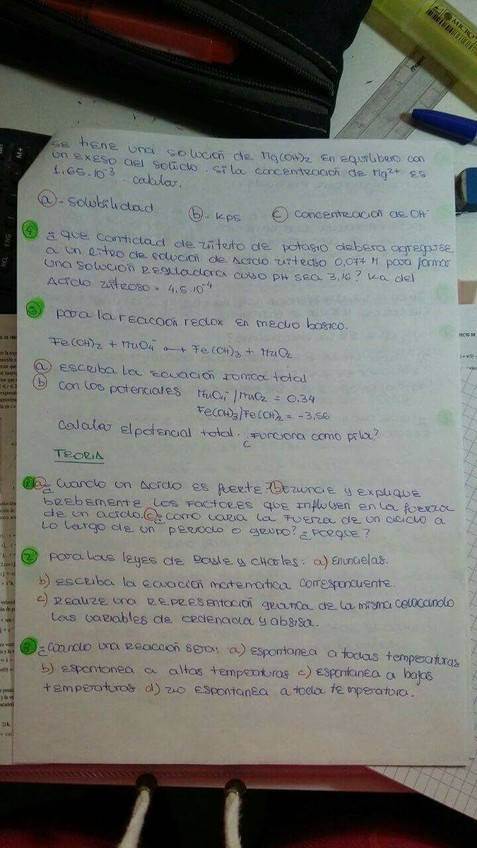 se tiene una solución de Mg(OH)₂ en equilibrio con
un exeso del solido. si la concentración de Mg²⁺ es
1.65.10⁻³ - calcular.
a - solubilidad b - Kps c) concentración de OH⁻
4 ¿ que cantidad de nitrito de potasio debera agregarse
a un litro de solución de acido nitroso 0,077 M para formar
una solución reguladora cuyo pH sea 3,16? Ka del
acido nitroso = 4,5.10⁻⁴
5 para la reacción redox en medio basico.
Fe(OH)₂ + MnO₄⁻ ⟷ Fe(OH)₃ + MnO₂
a escriba la ecuación ionica total
b con los potenciales MnO₄⁻/MnO₂ = 0.34
Fe(OH)₃/Fe(OH)₂ = -3.56
calcular el potencial total. ¿Funciona como pila?
TEORIA
1 a ¿ cuando un acido es fuerte? b) enuncie y explique
brebemente los factores que influyen en la fuerza
de un acido. c) ¿como varia la fuerza de un acido a
lo largo de un periodo o grupo? ¿porque?
2 para las leyes de Boyle y Charles: a) enuncielas.
b) escriba la ecuación matematica correspondiente.
c) Realize una representación grafica de la misma colocando
las variables de ordenada y absisa.
3 ¿cuando una reacción sera: a) espontanea a todas temperaturas
b) espontanea a altas temperaturas c) espontanea a bajas
temperaturas d) no espontanea a toda temperatura.